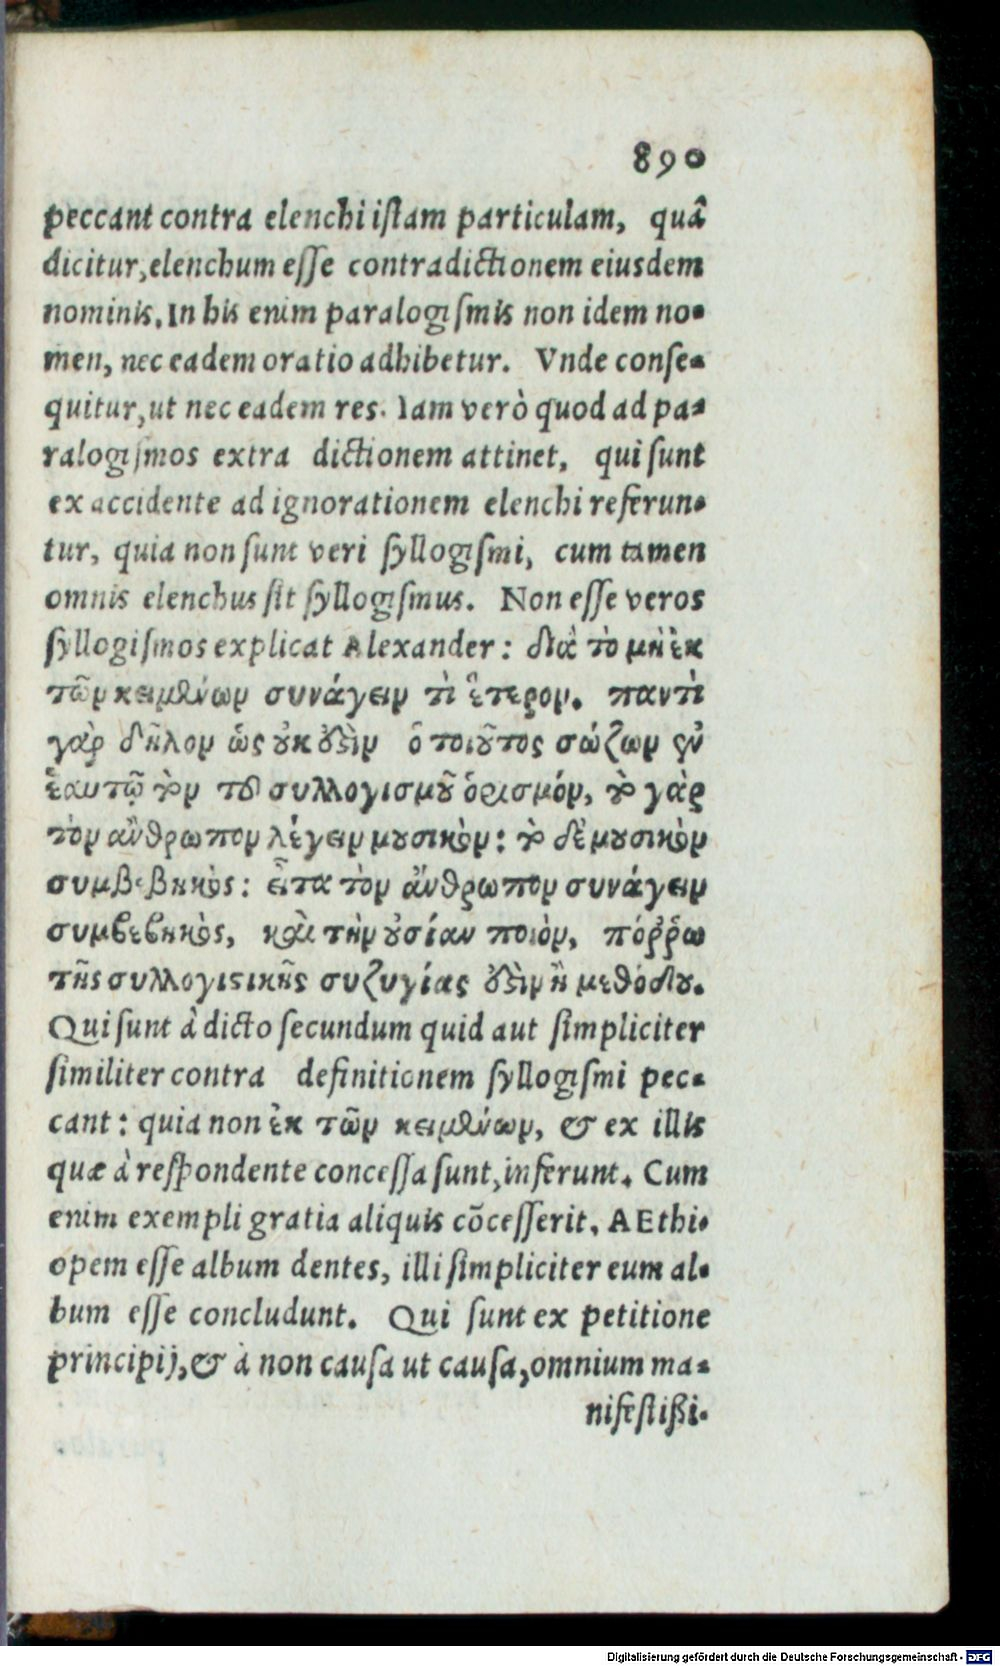 890
peccant contra elenchi istam particulam, quâ
dicitur, elenchum esse contradictionem eiusdem
nominis. In his enim paralogismis non idem no-
men, nec eadem oratio adhibetur. Vnde conse-
quitur, ut nec eadem res. Iam verò quod ad pa-
ralogismos extra dictionem attinet, qui sunt
ex accidente ad ignorationem elenchi referun-
tur, quia non sunt veri syllogismi, cum tamen
omnis elenchus sit syllogismus. Non esse veros
syllogismos explicat Alexander: διὰ τὸ μὴ ἐκ
τῶν κειμένων συνάγειν τὶ ἕτερον. παντὶ
γὰρ δῆλον ὡς οὐκ οὐδὲν ὁ τοιοῦτος σώζων ἐν
ἑαυτῷ τὸν τοῦ συλλογισμοῦ ὁρισμόν, τὸ γὰρ
τὸν ἄνθρωπον λέγειν μουσικὸν: τὸ δὲ μουσικὸν
συμβεβηκὸς: εἶτα τὸν ἄνθρωπον συνάγειν
συμβεβηκὸς, καὶ τὴν οὐσίαν ποιὸν, πόῤῥω
τῆς συλλογιστικῆς συζυγίας οὐδὲν ἢ μεθόδου.
Qui sunt à dicto secundum quid aut simpliciter
similiter contra definitionem syllogismi pec-
cant: quia non ἐκ τῶν κειμένων, & ex illis
quæ à respondente concessa sunt, inferunt. Cum
enim exempli gratia aliquis cõcesserit, AEthi-
opem esse album dentes, illi simpliciter eum al-
bum esse concludunt. Qui sunt ex petitione
principij, & à non causa ut causa, omnium ma-
nifestißi-
Digitalisierung gefördert durch die Deutsche Forschungsgemeinschaft - DFG